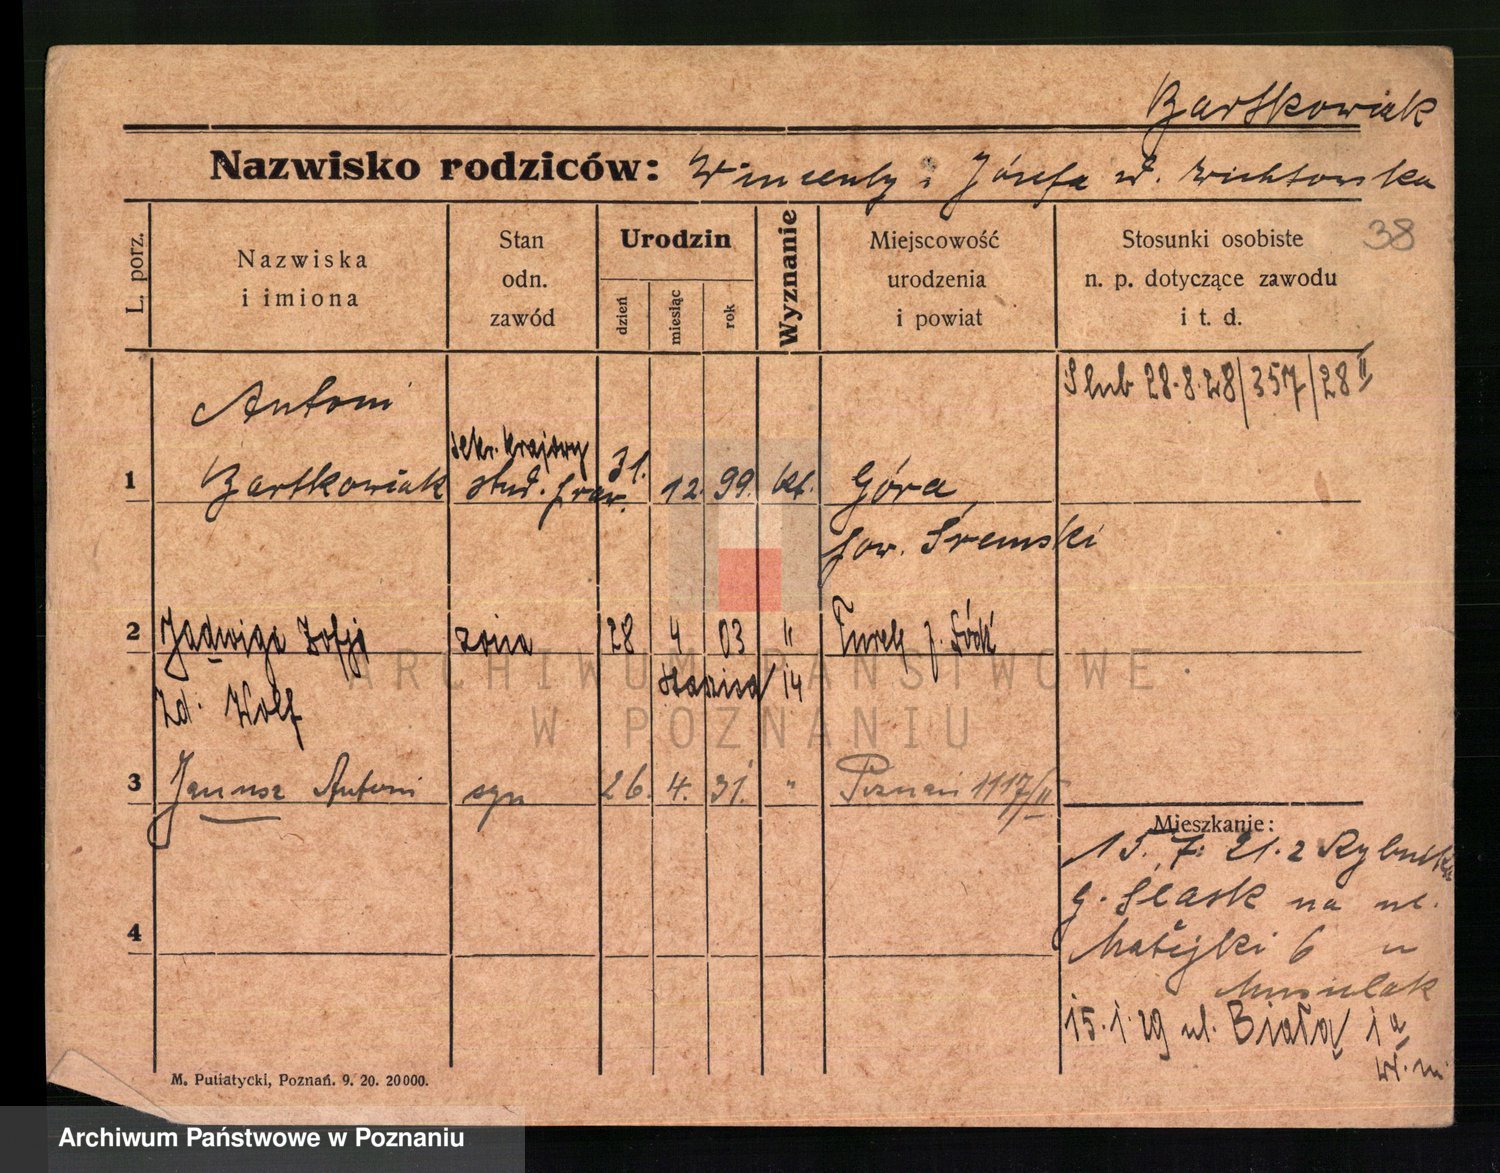 Bartkowiak
Nazwisko rodziców: Wincenty i Józefa
38
L. porz.
Nazwiska
i imiona
Stan
odn.
zawód
Urodzin
dzień
miesiąc
rok
Wyznanie
Miejscowość
urodzenia
i powiat
Stosunki osobiste
n. p. dotyczące zawodu
i t. d.
Ślub 28.8.28/357/28 II
1
Antoni
Bartkowiak
sekr. krajowy
stud. praw.
31. 12. 99. kt.
Góra
pow. Śremski
2
Jadwiga Zofja
zd. Wolf
żona
28 4 03 "
Turek p. Łódź
3
Janusz Antoni
syn
26. 4. 31. "
Poznań 1117/II
4
Mieszkanie:
15. 7. 21. z Rybnika
g. Śląsk na ul.
Matejki 6 u
15.1.29 ul. Biała 1a
M. Putiatycki, Poznań. 9. 20. 20000.
ARCHIWUM PAŃSTWOWE
W POZNANIU
Archiwum Państwowe w Poznaniu